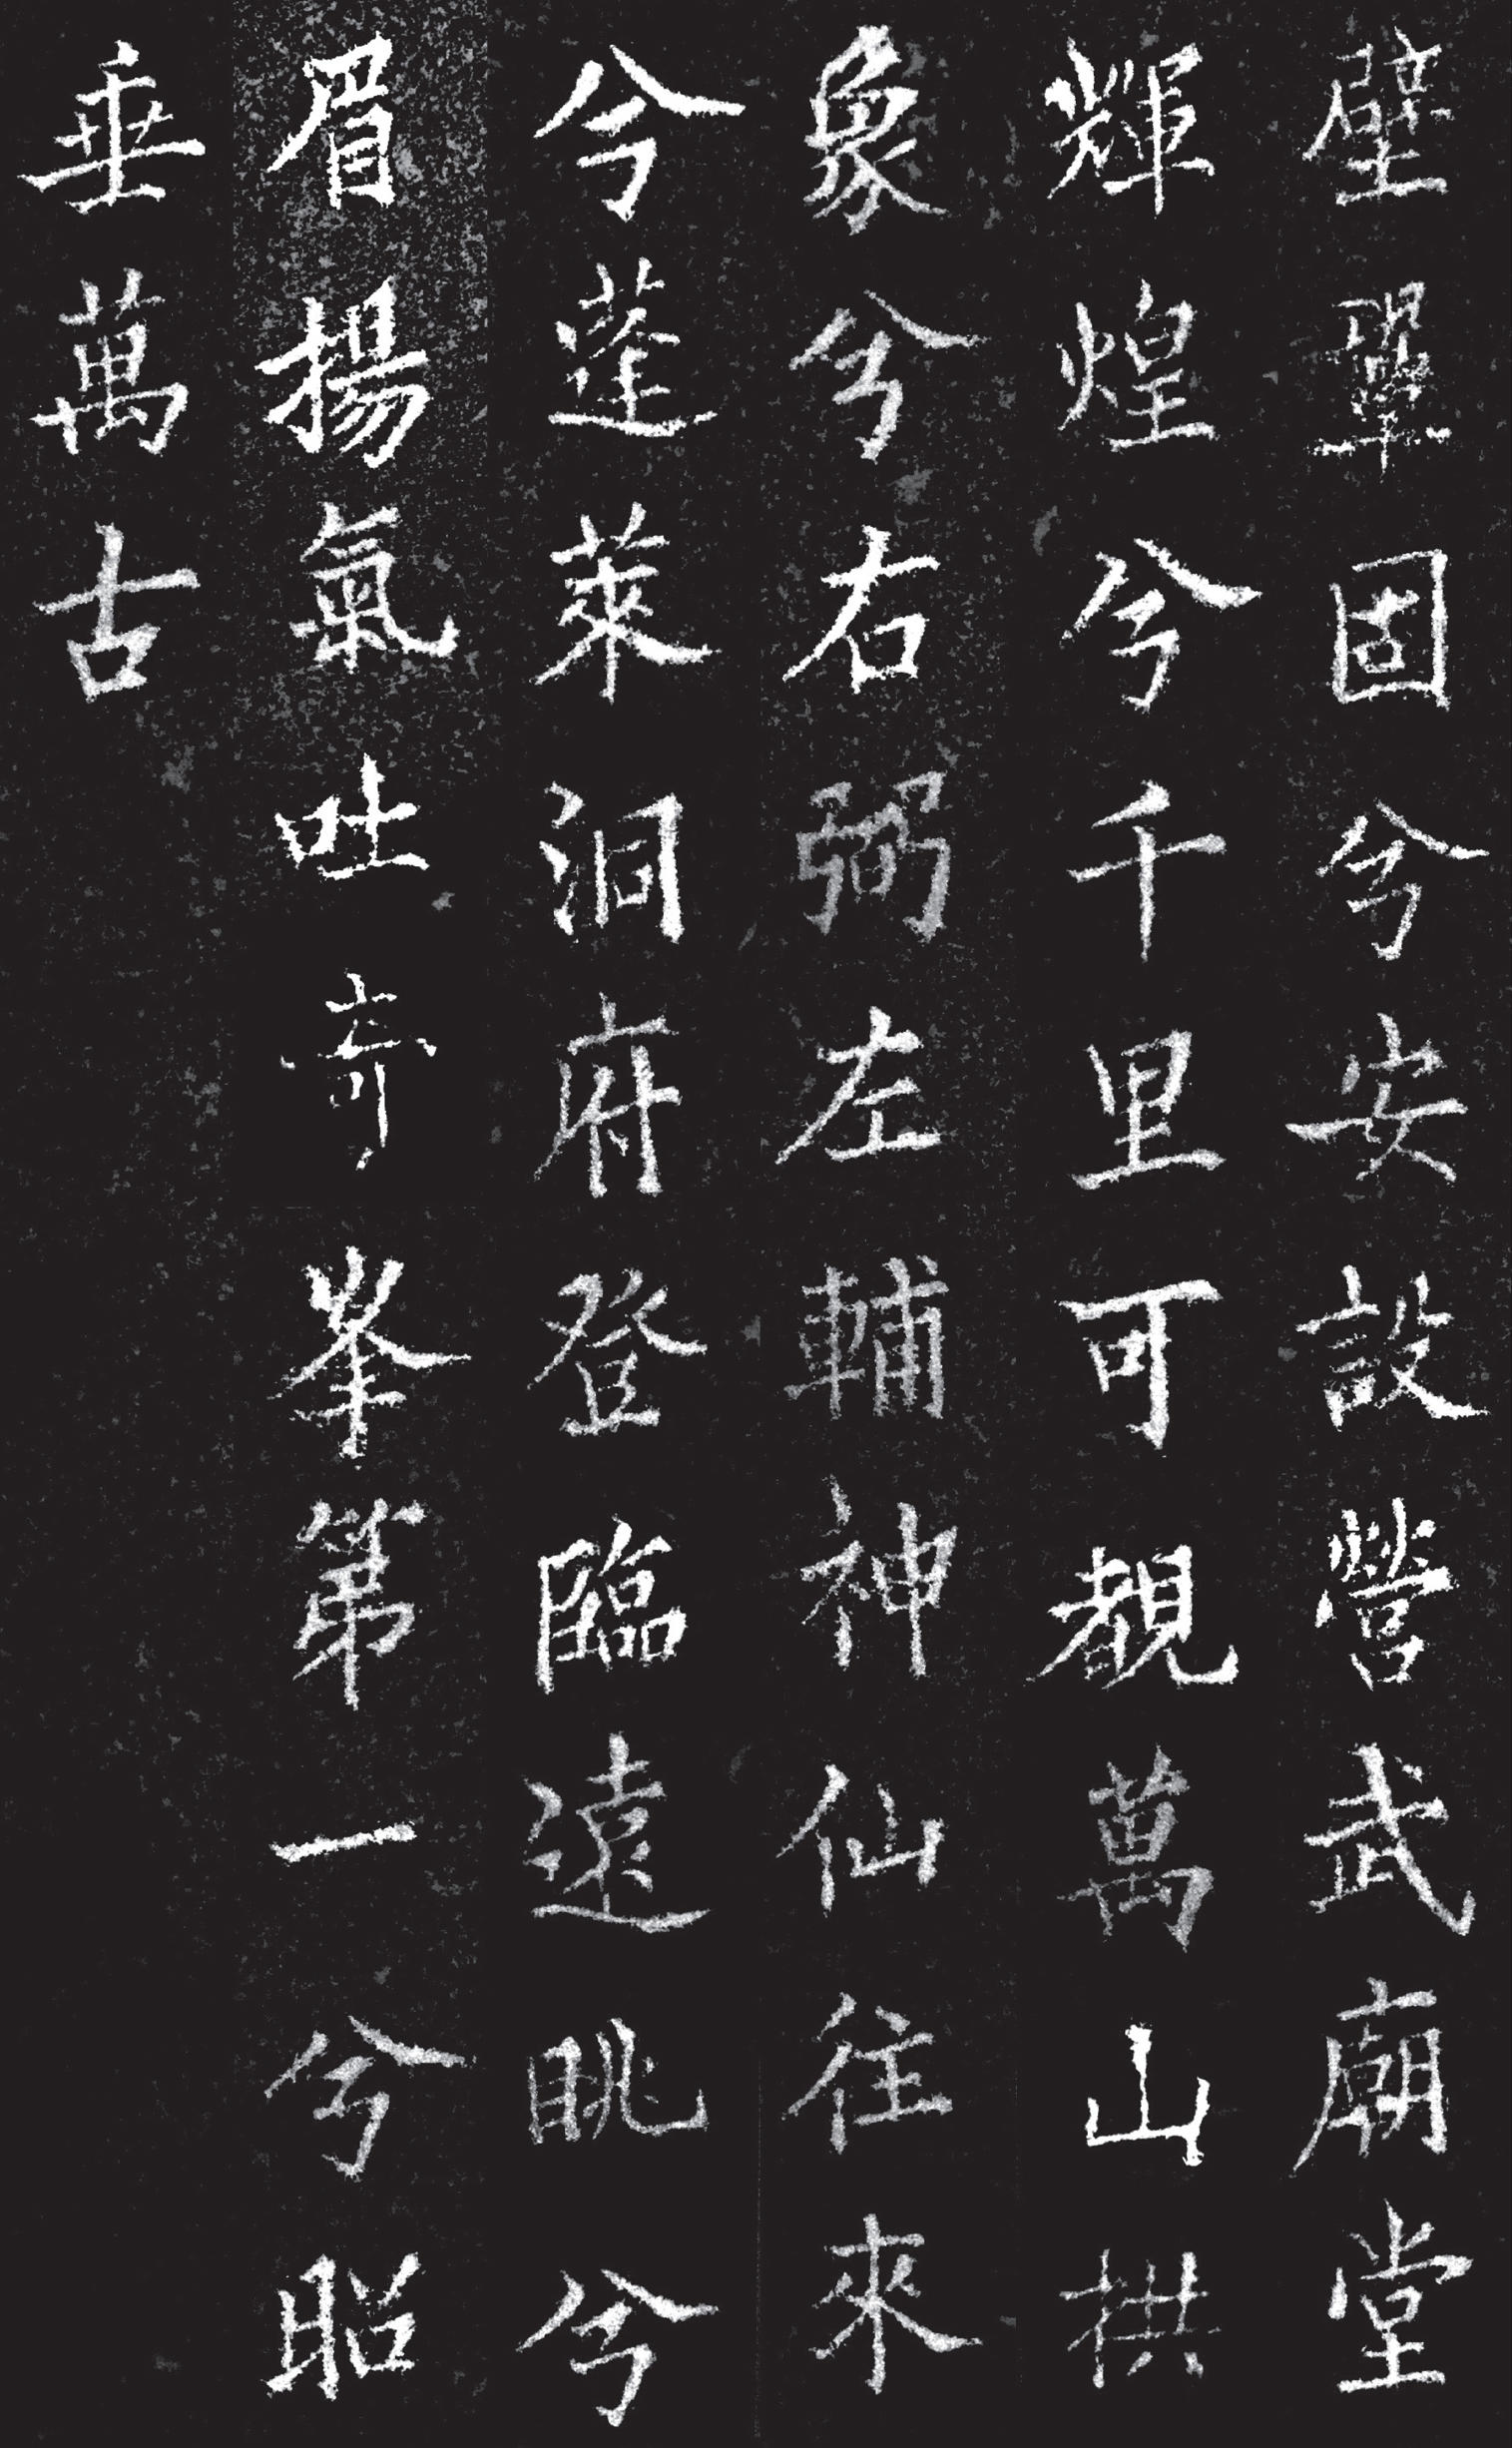 壁鞏固兮安設營武廟堂
輝煌兮千里可觀萬山拱
象兮右弼左輔神仙往來
兮蓬萊洞府登臨遠眺兮
眉揚氣吐奇峯第一兮昭
垂萬古